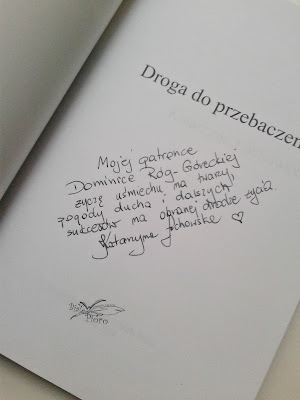 Droga do przebaczen
Mojej patronce
Dominice Róg-Góreckiej
życzę uśmiechu na twarzy,
pogody ducha i dalszych
sukcesów na obranej drodze życia.
Katarzyna
Pióro